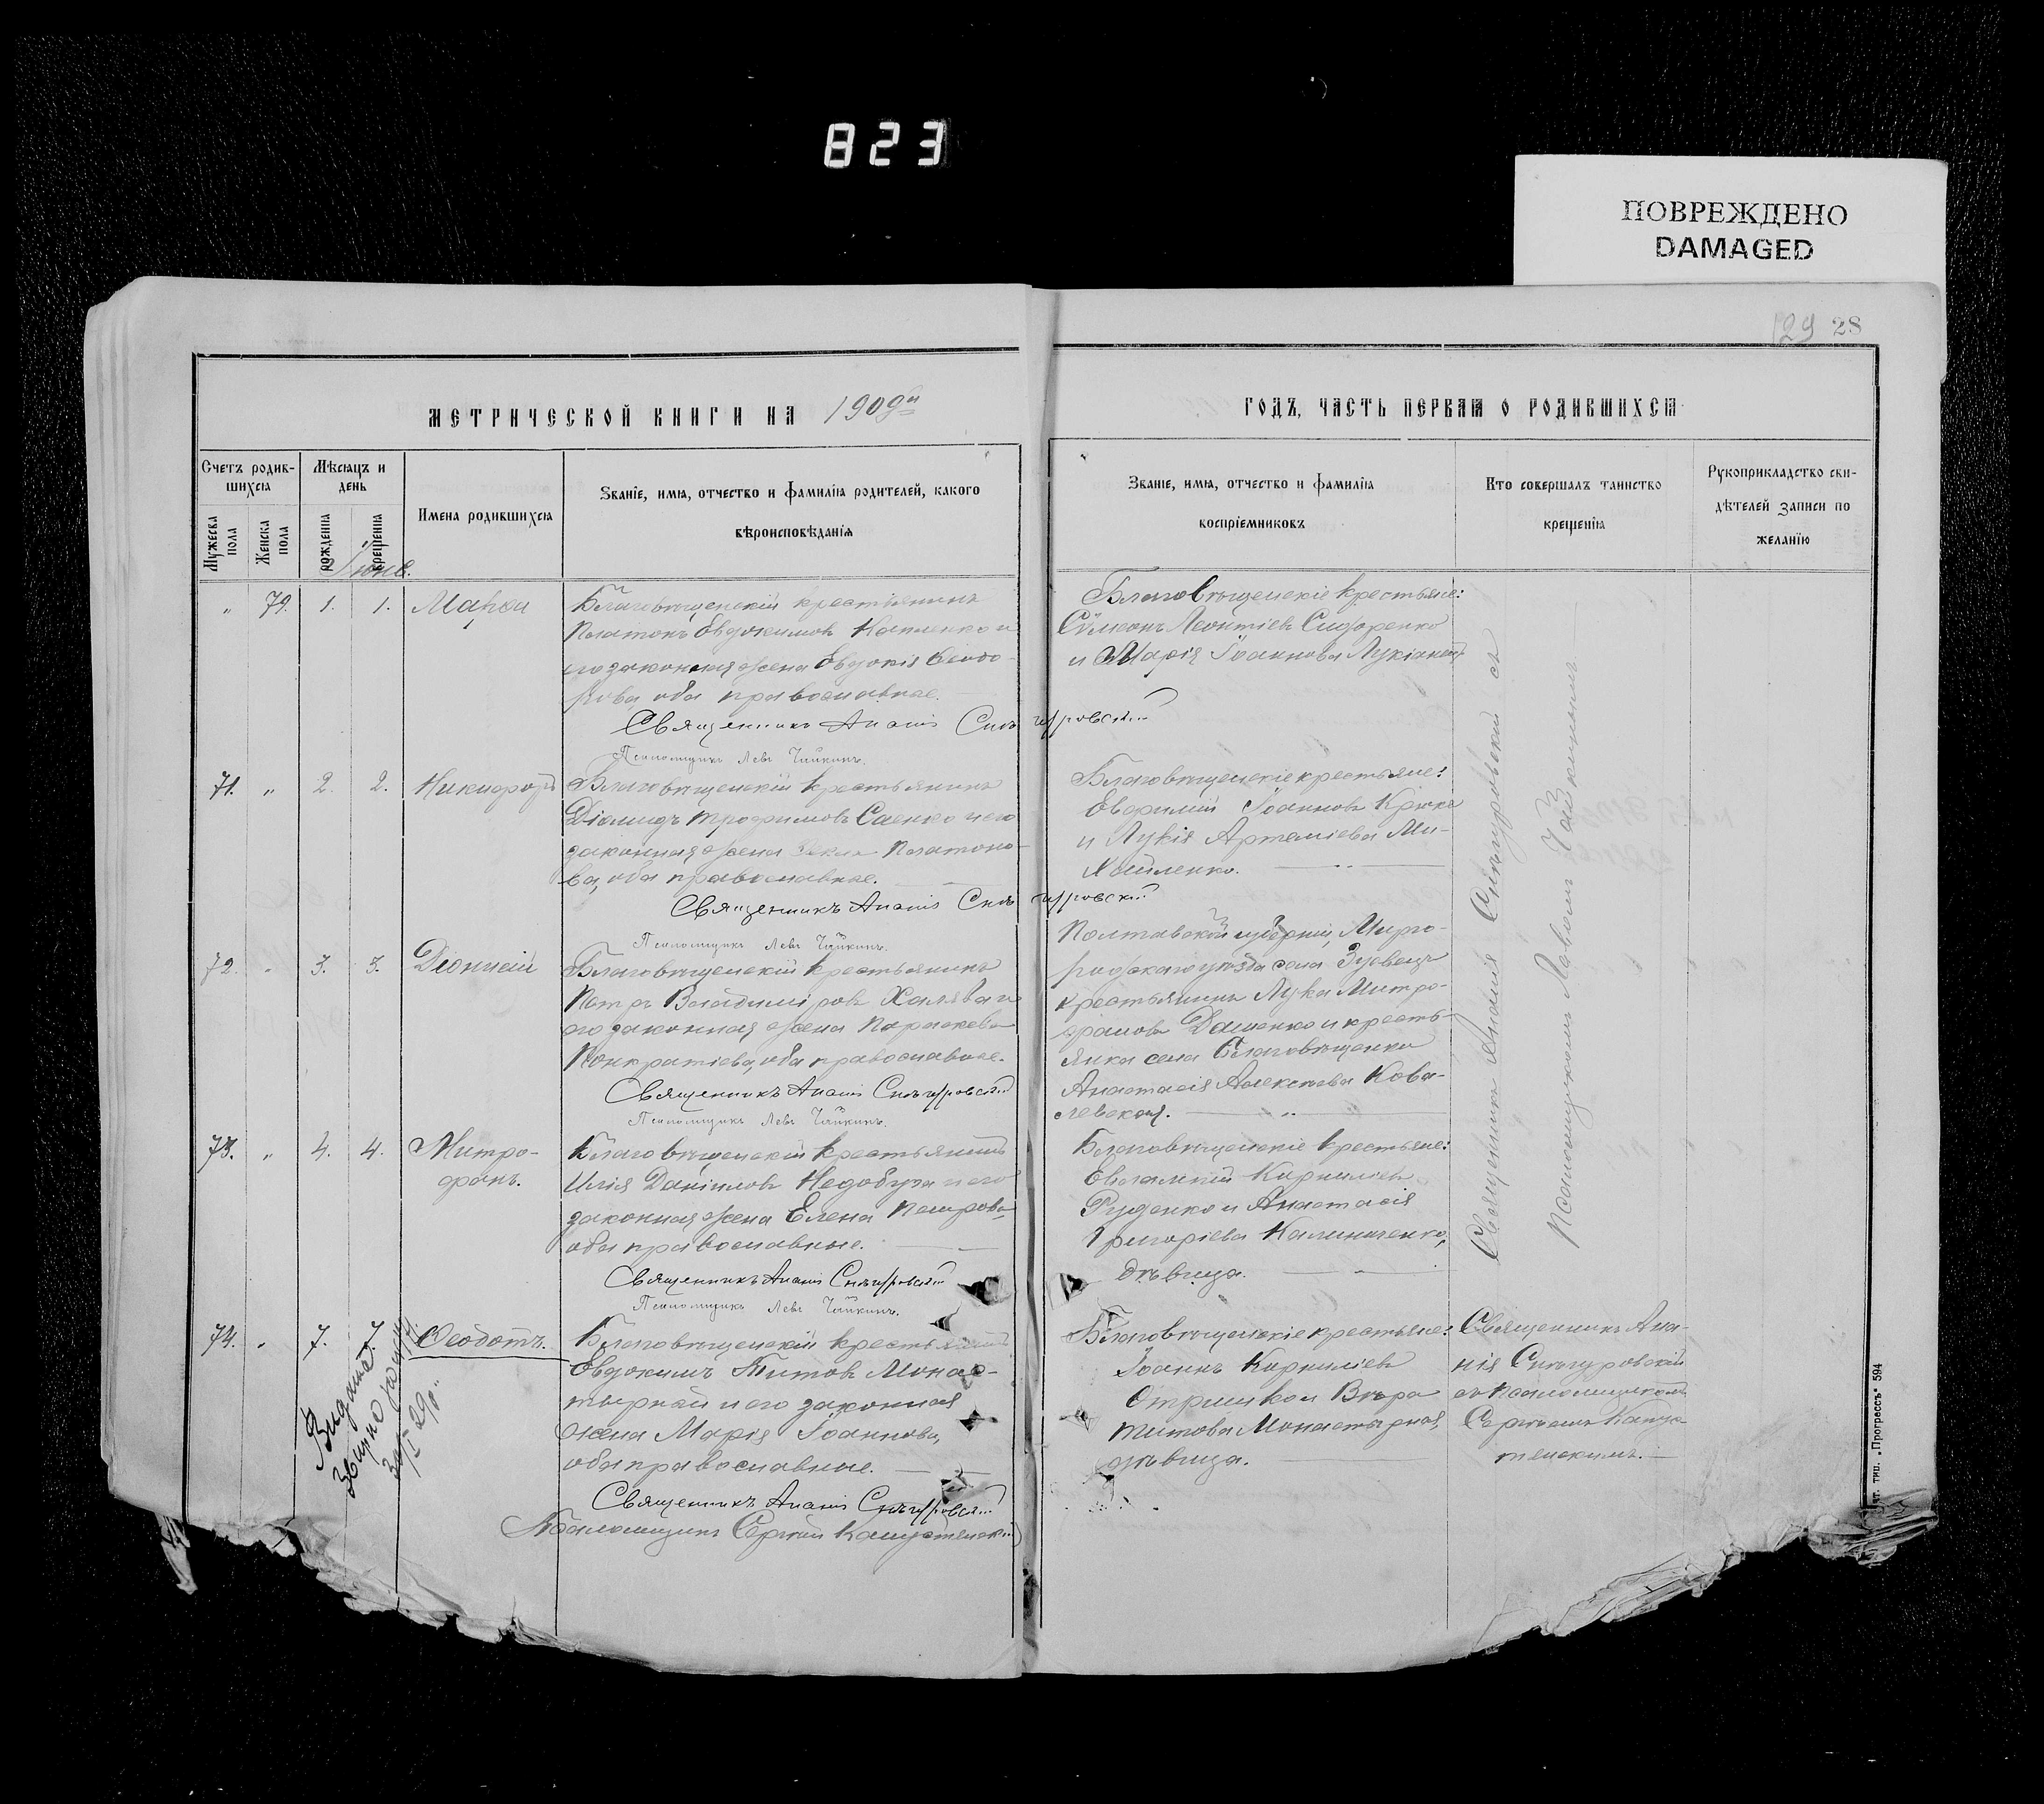 823
ПОВРЕЖДЕНО
DAMAGED
129 28
МЕТРИЧЕСКОЙ КНИГИ НА 1909й
ГОДЪ, ЧАСТЬ ПЕРВАЯ О РОДИВШИХСЯ
Счетъ родив-
шихся
Мужеска пола
Женска пола
Мѣсяцъ и
день
рожденія
крещенія
Имена родившихся
Званіе, имя, отчество и фамилія родителей, какого
вѣроисповѣданія
Званіе, имя, отчество и фамилія
воспріемниковъ
Кто совершалъ таинство
крещенія
Рукоприкладство сви-
дѣтелей записи по
желанію
Іюнь.
" 79. 1. 1. Марѳа
Благовѣщенскій крестьянинъ
Платонъ Евдокимовъ Капленко и
его законная жена Евдокія Ѳеодо-
рова оба православные.
Священникъ Ананія Снѣгуровскій
Псаломщикъ Левъ Чайкинъ.
Благовѣщенскіе крестьяне:
Сѵмеонъ Леонтіевъ Сидоренко
и Марія Іоаннова
71. " 2. 2. Никифоръ
Благовѣщенскій крестьянинъ
Діомидъ Трофимовъ Саенко и его
законная жена Платоно-
ва, оба православные.
Священникъ Ананія Снѣгуровскій
Псаломщикъ Левъ Чайкинъ.
Благовѣщенскіе крестьяне:
Евфимій Іоанновъ
и Лукія Артеміева Ми-
хайленко.
72. " 3. 3. Діонисій
Благовѣщенскій крестьянинъ
Петръ Владиміровъ Халява и
его законная жена Параскева
Панкратіева, оба православные.
Священникъ Ананія Снѣгуровскій
Псаломщикъ Левъ Чайкинъ.
Полтавской губерніи, Мирго-
родскаго уѣзда села Зуевецъ
крестьянинъ Лука Митро-
фановъ Даценко и кресть-
янка села Благовѣщенки
Анастасія Алексѣева Кова-
левская.
73. " 4. 4. Митро-
фанъ.
Благовѣщенскій крестьянинъ
Илія Даніиловъ Недобуга и его
законная жена Елена Петрова,
оба православные.
Священникъ Ананія Снѣгуровскій
Псаломщикъ Левъ Чайкинъ.
Благовѣщенскіе крестьяне:
Евлампій Кирилліевъ
Руденко и Анастасія
Григоріева Калиниченко,
дѣвица.
Священникъ Ананія Снѣгуровскій съ
Псаломщикомъ Львомъ Чайкинымъ
74. " 7. 7. Ѳеодотъ.
Благовѣщенскій крестьянинъ
Евдокимъ Титовъ Монас-
тырный и его законная
жена Марія Іоаннова,
оба православные.
Священникъ Ананія Снѣгуровскій
Псаломщикъ Сергій Капустянскій
Благовѣщенскіе крестьяне:
Іоаннъ Кирилліевъ
Отришко и Вѣра
Титова Монастырная,
дѣвица.
Священникъ Ана-
нія Снѣгуровскій
съ псаломщикомъ
Сергіемъ Капус-
тянскимъ.
тип. „Прогрессъ" 594